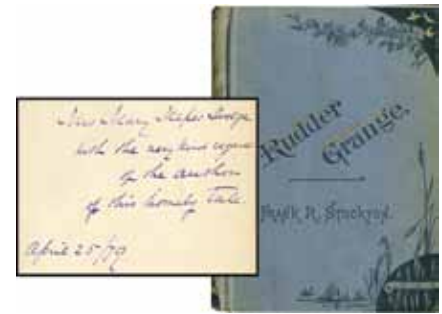 Mrs Mary Mapes Dodge
with the very kind regards
of the author
of this homely Tale.
April 25/79
Rudder
Grange.
FRANK R. STOCKTON.